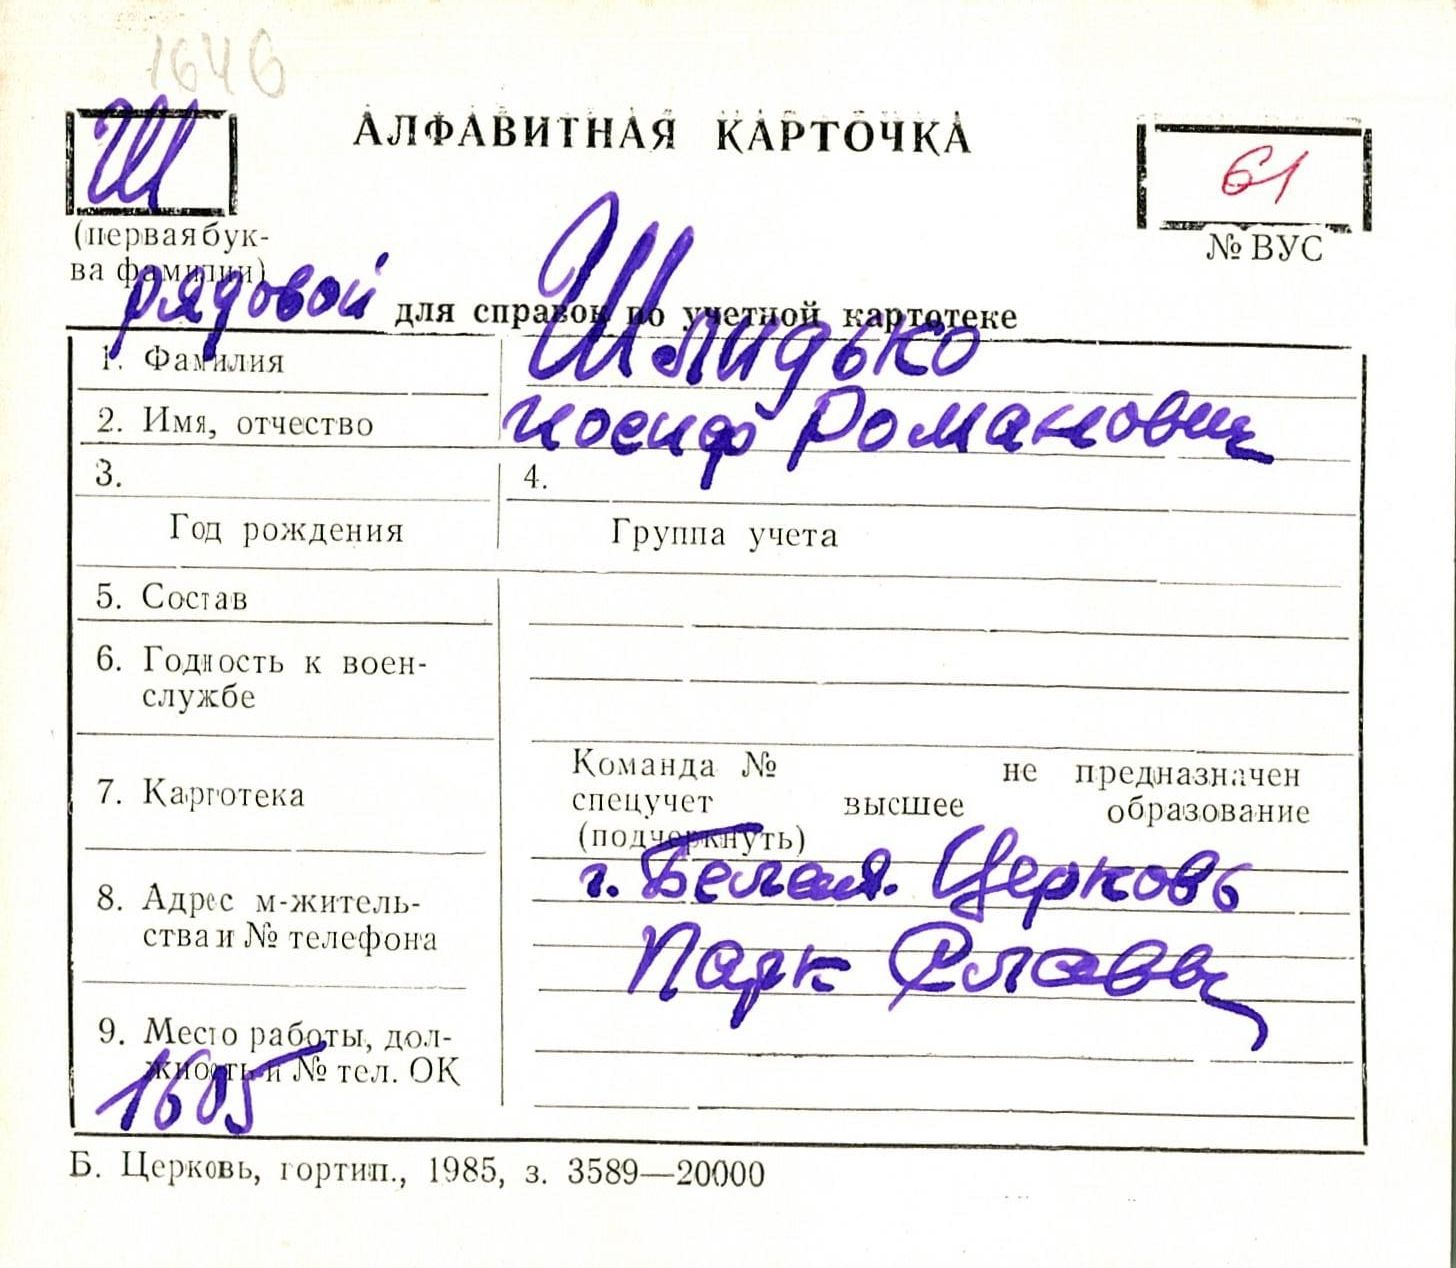 1646
Ш
АЛФАВИТНАЯ КАРТОЧКА
61
(первая бук-
ва фамилии)
№ ВУС
рядовой
для справок по учетной картотеке
1. Фамилия Шлидько
2. Имя, отчество Иосиф Романович
3. 4.
Год рождения Группа учета
5. Состав
6. Годность к воен-
службе
7. Картотека
Команда № не предназначен
спецучет высшее образование
(подчеркнуть)
8. Адрес м-житель-
ства и № телефона
г. Белая Церковь
Парк Славы
9. Место работы, дол-
жность и № тел. ОК
1605
Б. Церковь, гортип., 1985, з. 3589—20000